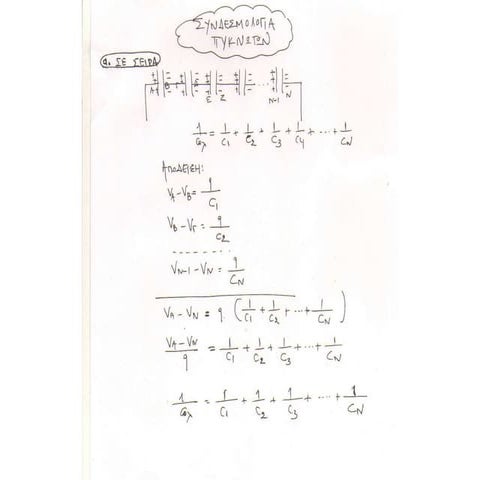 ΣΥΝΔΕΣΜΟΛΟΓΙΑ
ΠΥΚΝΩΤΩΝ
α. ΣΕ ΣΕΙΡΑ
A B Γ Δ E Z N-1 N
1/Cολ = 1/C1 + 1/C2 + 1/C3 + 1/C4 + ... + 1/CN
ΑΠΟΔΕΙΞΗ:
VA-VB = q/C1
VB-VΓ = q/C2
VN-1-VN = q/CN
VA-VN = q. (1/C1 + 1/C2 + ... + 1/CN)
VA-VN/q = 1/C1 + 1/C2 + 1/C3 + ... + 1/CN
1/Cολ = 1/C1 + 1/C2 + 1/C3 + ... + 1/CN